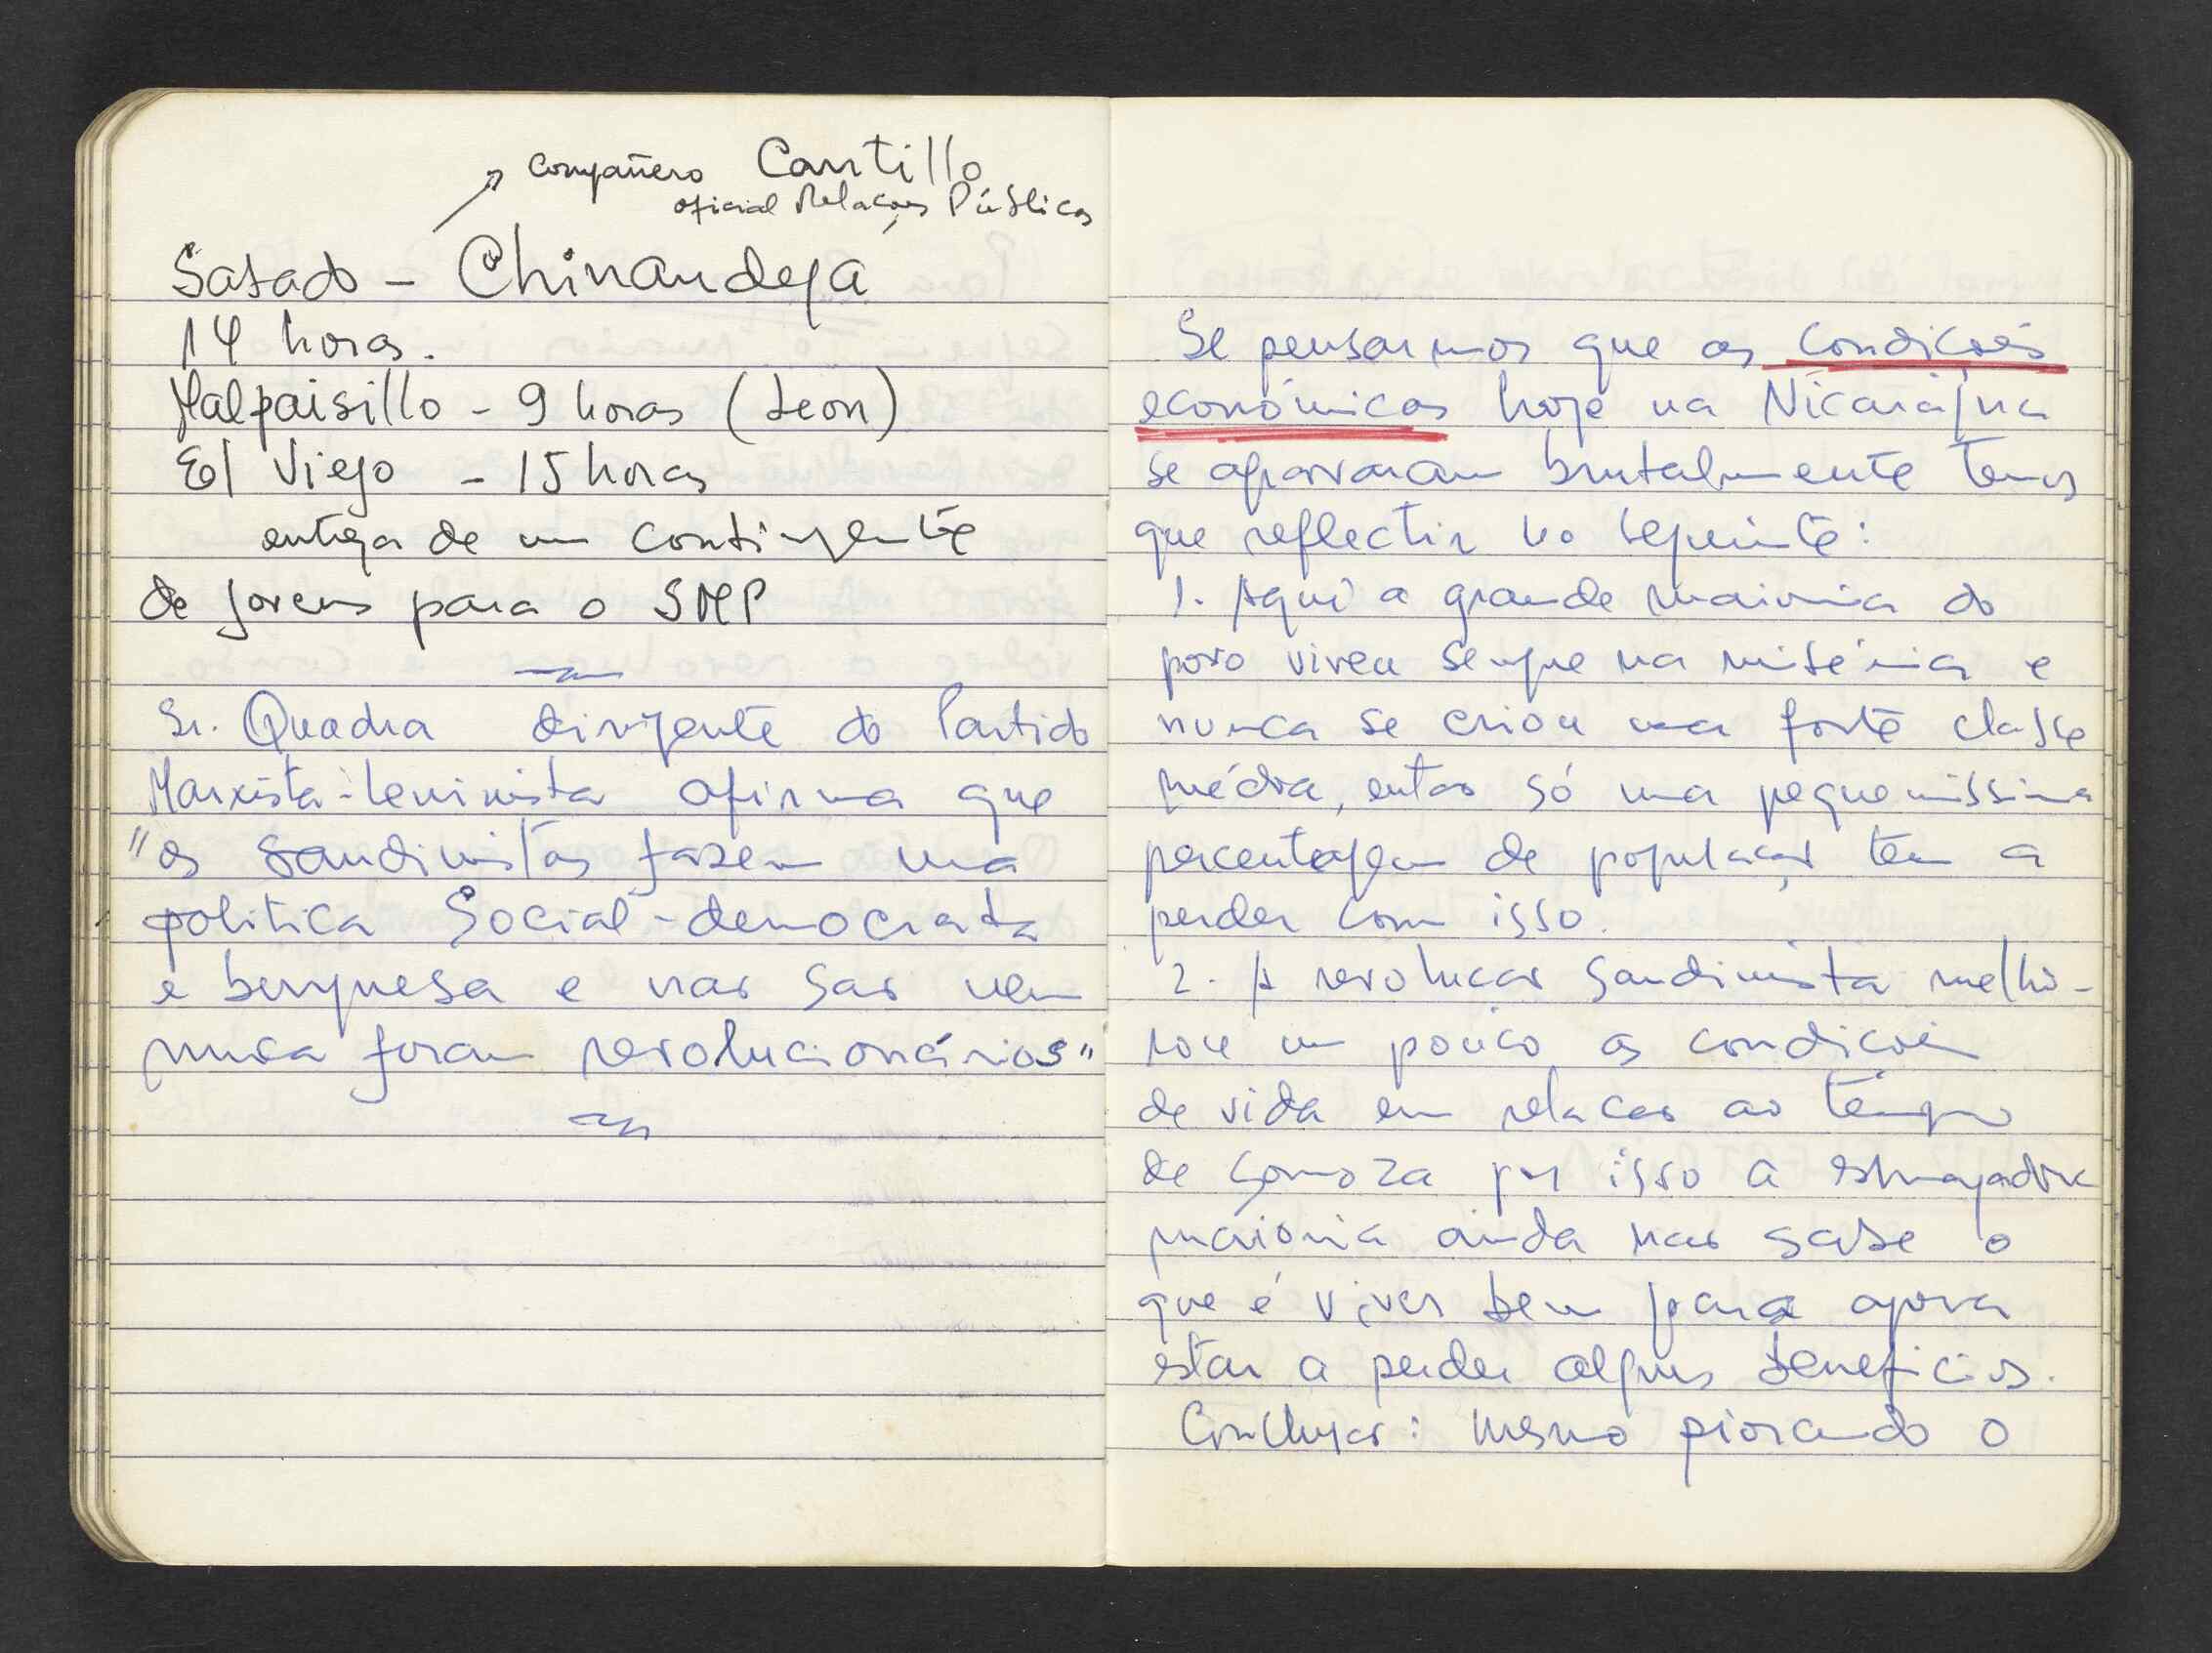 compañero Cantillo
oficial Relações Públicas
Sabado - Chinandega
14 horas.
Malpaisillo - 9 horas (Leon)
El Viejo - 15 horas
entrega de um contingente
de jovens para o SMP
Sr. Quadra dirigente do Partido
Marxista-leninista afirma que
"os sandinistas fazem uma
politica Social-democrata
e burguesa e não são nem
nunca foram revolucionários"
Se pensarmos que as condições
económicas hoje na Nicarágua
se agravaram brutalmente temos
que reflectir no seguinte:
1. Aqui a grande maioria do
povo viveu sempre na miséria e
nunca se criou uma forte classe
média, então só uma pequeníssima
percentagem de população tem a
perder com isso.
2. A revolução sandinista melho-
rou um pouco as condições
de vida em relação ao tempo
de Somoza por isso a esmagadora
maioria ainda não sabe o
que é viver bem para agora
estar a perder alguns beneficios.
Conclusão: mesmo piorando o